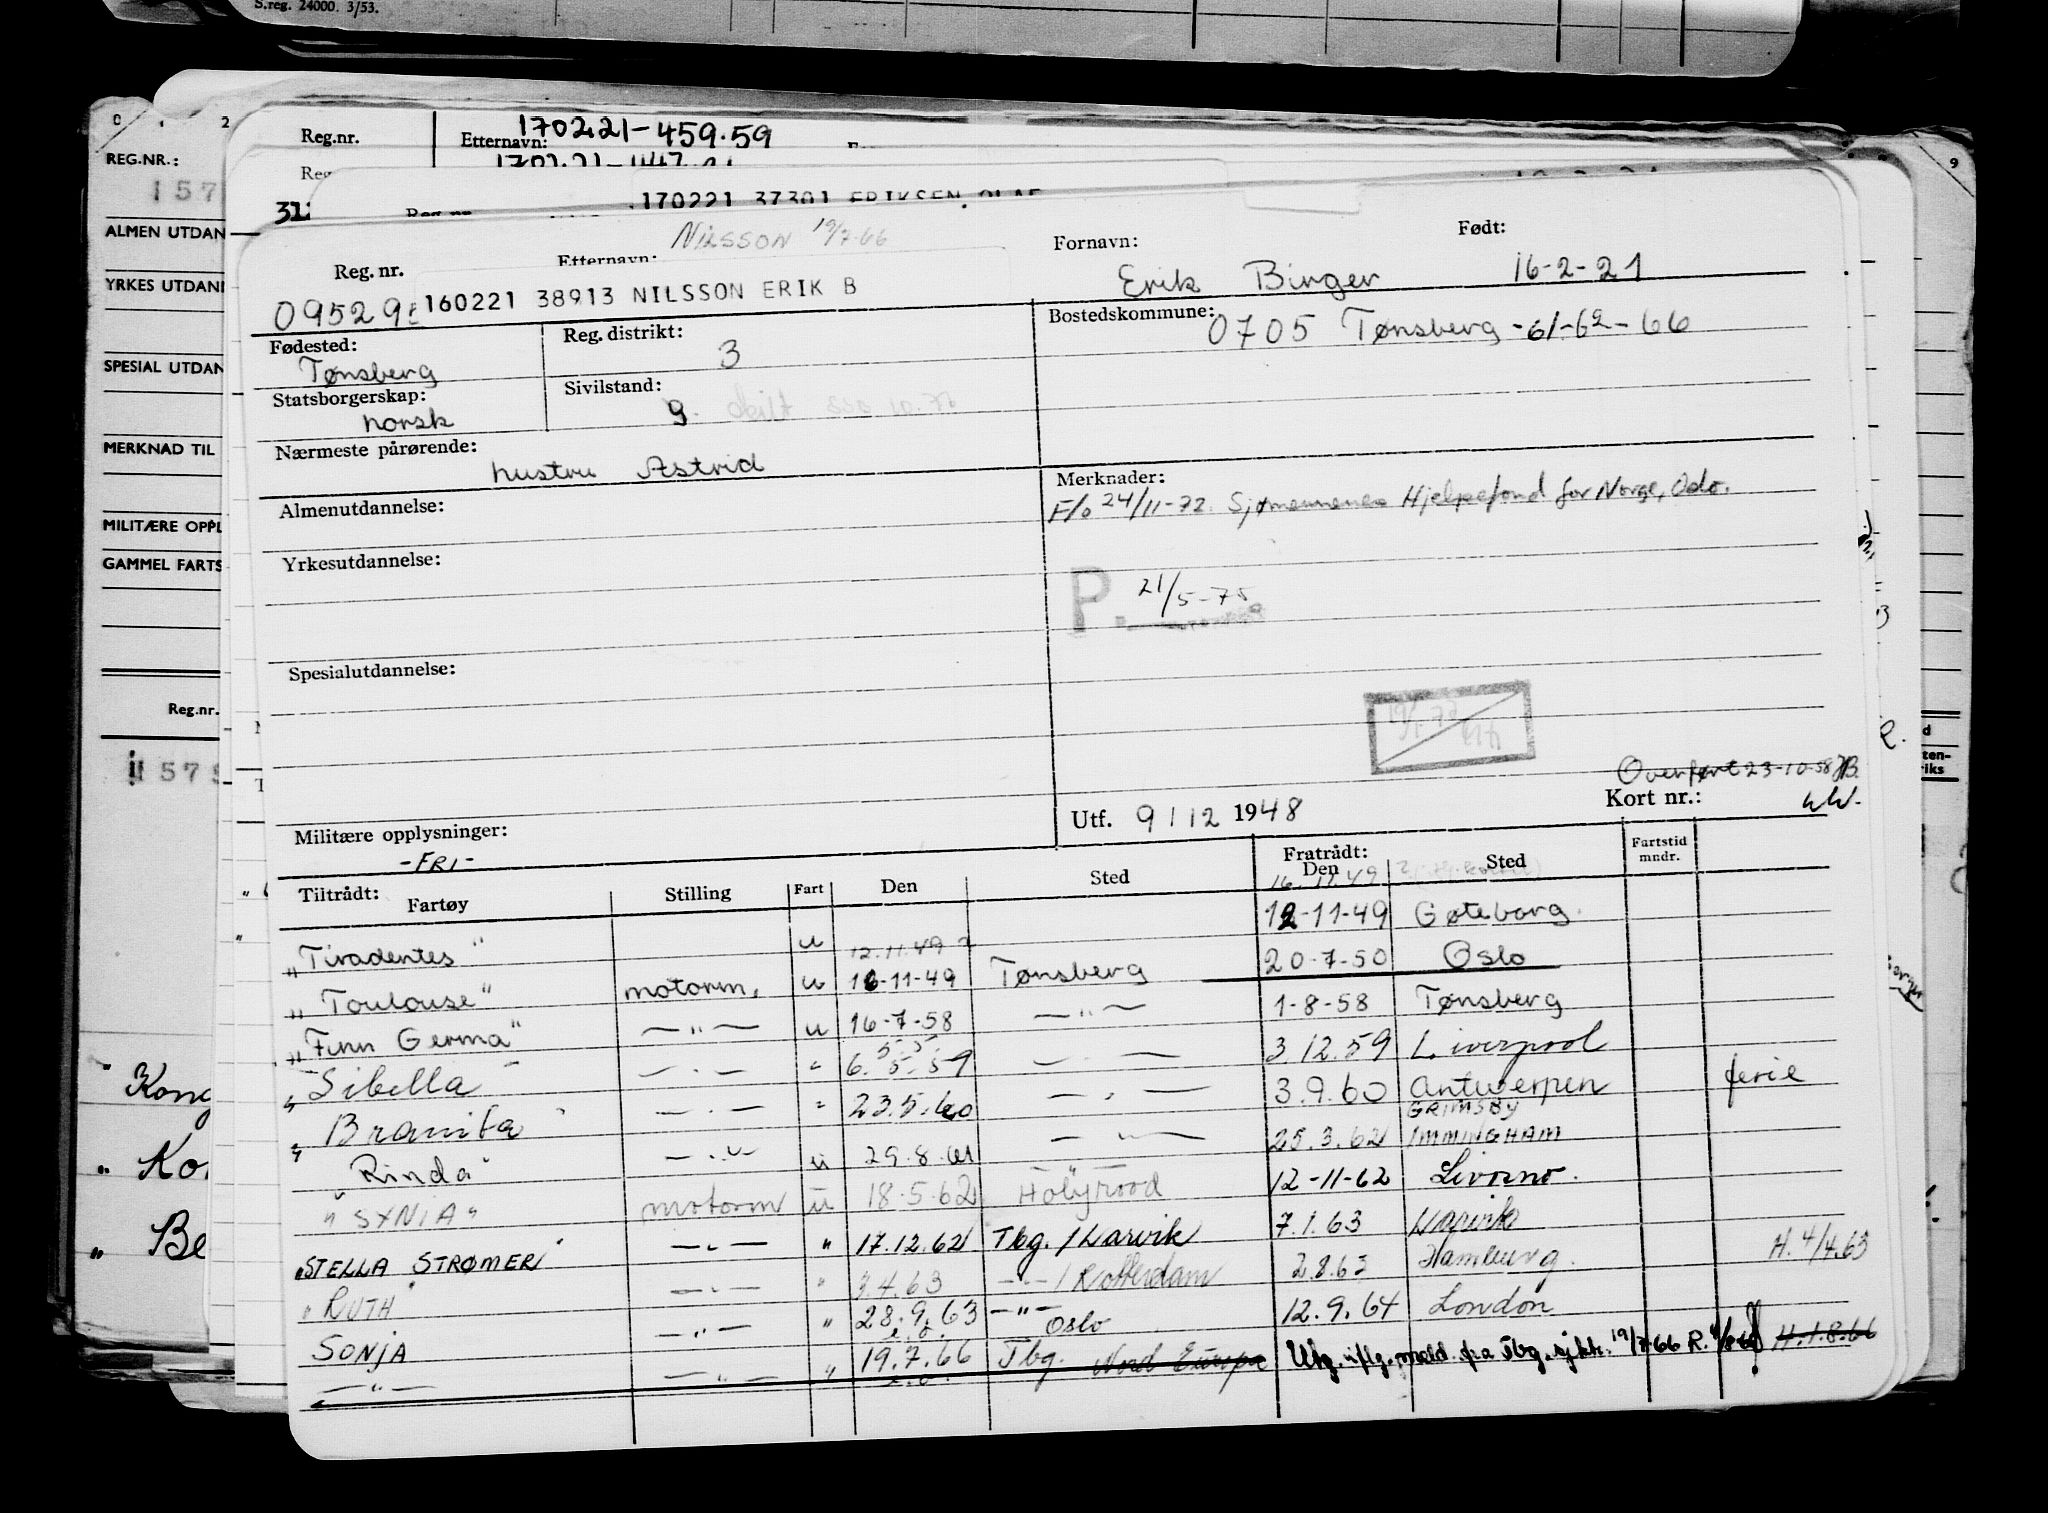 S.reg. 24000. 3/53.
REG.NR.:
157
ALMEN UTDAN
YRKES UTDANN
SPESIAL UTDAN
MERKNAD TIL
MILITÆRE OPPL
GAMMEL FARTS
Reg.nr.
Kong
Be
Reg.nr. Etternavn: 170221-459.59
170221 37301 ERIKSEN OLAF
NILSSON 19/7-66
Reg. nr. Etternavn: Fornavn: Født:
09529 160221 38913 NILSSON ERIK B Erik Birger 16-2-21
Fødested: Reg. distrikt: Bostedskommune:
Tønsberg 3 0705 Tønsberg -61-62-66
Statsborgerskap: Sivilstand:
norsk g. skilt
Nærmeste pårørende:
hustru Astrid
Merknader:
F/o 24/11-72. Sjømennenes Hjelpefond for Norge, Oslo.
Almenutdannelse:
Yrkesutdannelse:
P. 21/5-75
Spesialutdannelse:
Overført 23-10-58
Militære opplysninger: Utf. 9/12 1948 Kort nr.:
-FRI-
Tiltrådt: Fratrådt: Fartstid mndr.
Fartøy Stilling Fart Den Sted Den Sted
16.11.49
"Tiradentes" u 12-11-49 Gøteborg.
12.11.49 ?
"Toulouse" motorm. u 16-11-49 Tønsberg 20-7-50 Oslo
"Finn Germa" — " — u 16-7-58 — " — 1-8-58 Tønsberg
"Sibella" — " — " 6.5.59 — " — 3.12.59 Liverpool
"Bramita" — " — " 23.5.60 — " — 3.9.60 Antwerpen ferie
GRIMSBY
"Rinda" — " — u 29.8.61 — " — 25.3.62 IMMINGHAM
"SYNIA" motorm u 18.5.62 Holyrood 12-11-62 Livorno.
"STELLA STRØMER" — " — " 17.12.62 Tbg. / Larvik 7.1.63 Larvik
"RUTH" — " — " 3.4.63 — " — / Rotterdam 2.8.63 Hamburg. H. 4/4.63
SONJA — " — " 28.9.63 — " — Oslo 12.9.64 London
— " — — " — " 19.7.66 Tbg. Nord Europa Utg. iflg. meld. fra Tbg. sj.ktr. 19/7-66 H.1.8.66